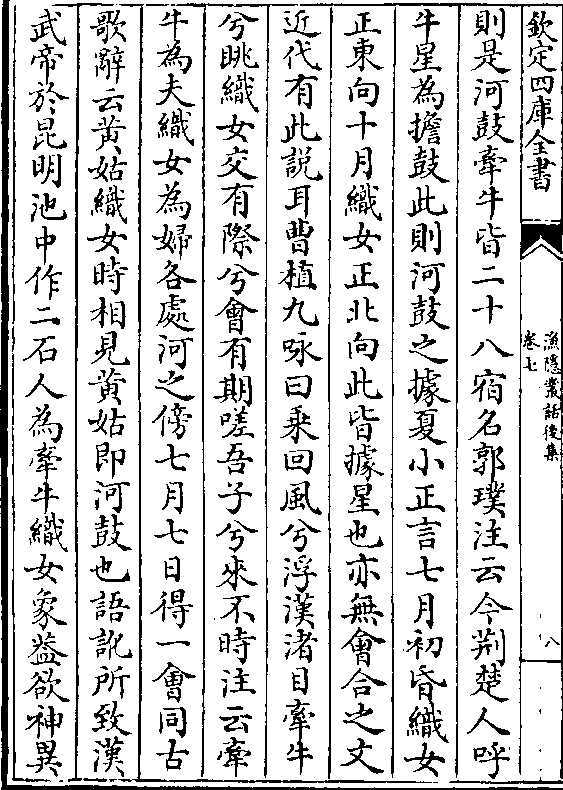 欽定四庫全書
漁隱叢話後集
卷七
八
則是河鼓牽牛皆二十八宿名郭璞注云今荆楚人呼
牛星為擔鼓此則河鼓之據夏小正言七月初昏織女
正東向十月織女正北向此皆據星也亦無會合之文
近代有此說耳曹植九咏曰乗回風兮浮漢渚目牽牛
兮眺織女交有際兮會有期嗟吾子兮來不時注云牽
牛為夫織女為婦各處河之傍七月七日得一會同古
歌辭云黄姑織女時相見黄姑即河鼓也語訛所致漢
武帝於昆明池中作二石人為牽牛織女象益欲神異